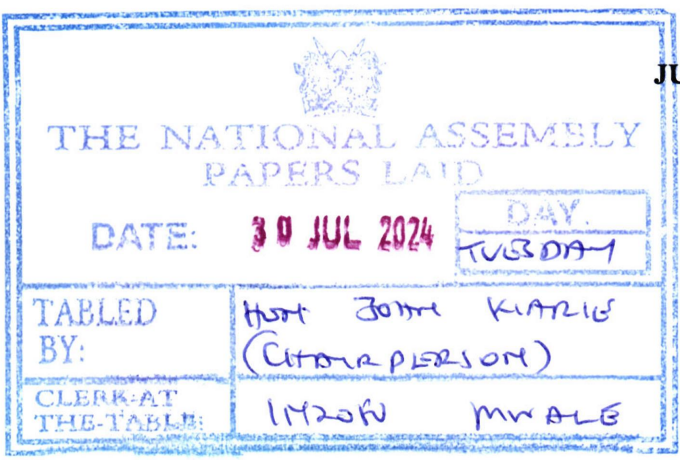 JU
THE NATIONAL ASSEMBLY
PAPERS LAID
DATE: 30 JUL 2024
DAY.
TUESDAY
TABLED BY:
HON JOHN KIARIE
(CHAIRPERSON)
CLERK-AT THE-TABLE:
INZOFU MWALE